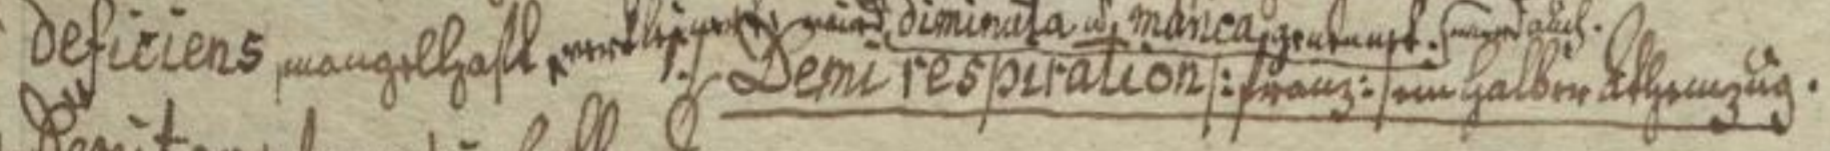 deficiens, mangelhaft, wird diminuta u, manca, genennet.
Demi respiration |: franz: | ein halber Athemzug.